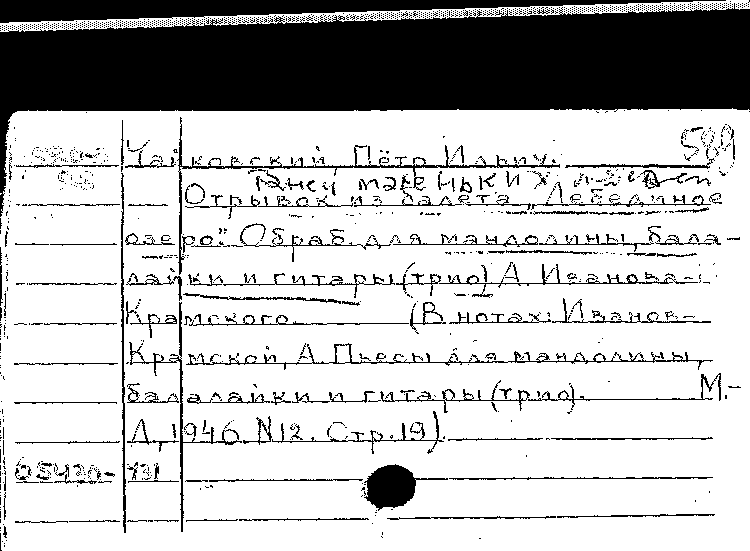 589
Чайковский, Пётр Ильич.
Танец маленьких лебедей
Отрывок из балета „Лебединое
озеро". Обраб. для мандолины, бала-
лайки и гитары (трио) А. Иванова-
Крамского. (В нотах: Иванов-
Крамской, А. Пьесы для мандолины,
балалайки и гитары (трио). М.-
Л., 1946. N12. Стр. 19).